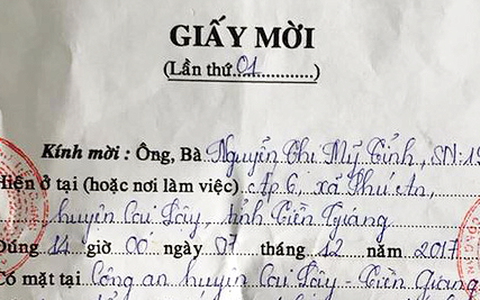 GIẤY MỜI
(Lần thứ 01)
Kính mời : Ông, Bà Nguyễn Thị Mỹ Tỉnh, SN: 19
Hiện ở tại (hoặc nơi làm việc) ấp 6, xã Phú An,
huyện Cai Lậy, tỉnh Tiền Giang
Đúng 14 giờ 00 ngày 07 tháng 12 năm 2017
Có mặt tại Công an huyện Cai Lậy - Tiền Giang